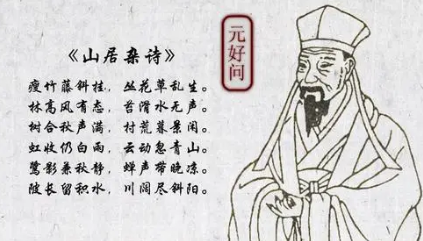 《山居杂诗》
元好问
瘦竹藤斜挂，丛花草乱生。
林高风有态，苔滑水无声。
树合秋声满，村荒暮景闲。
虹收仍白雨，云动忽青山。
鹭影兼秋静，蝉声带晚凉。
陂长留积水，川阔尽斜阳。